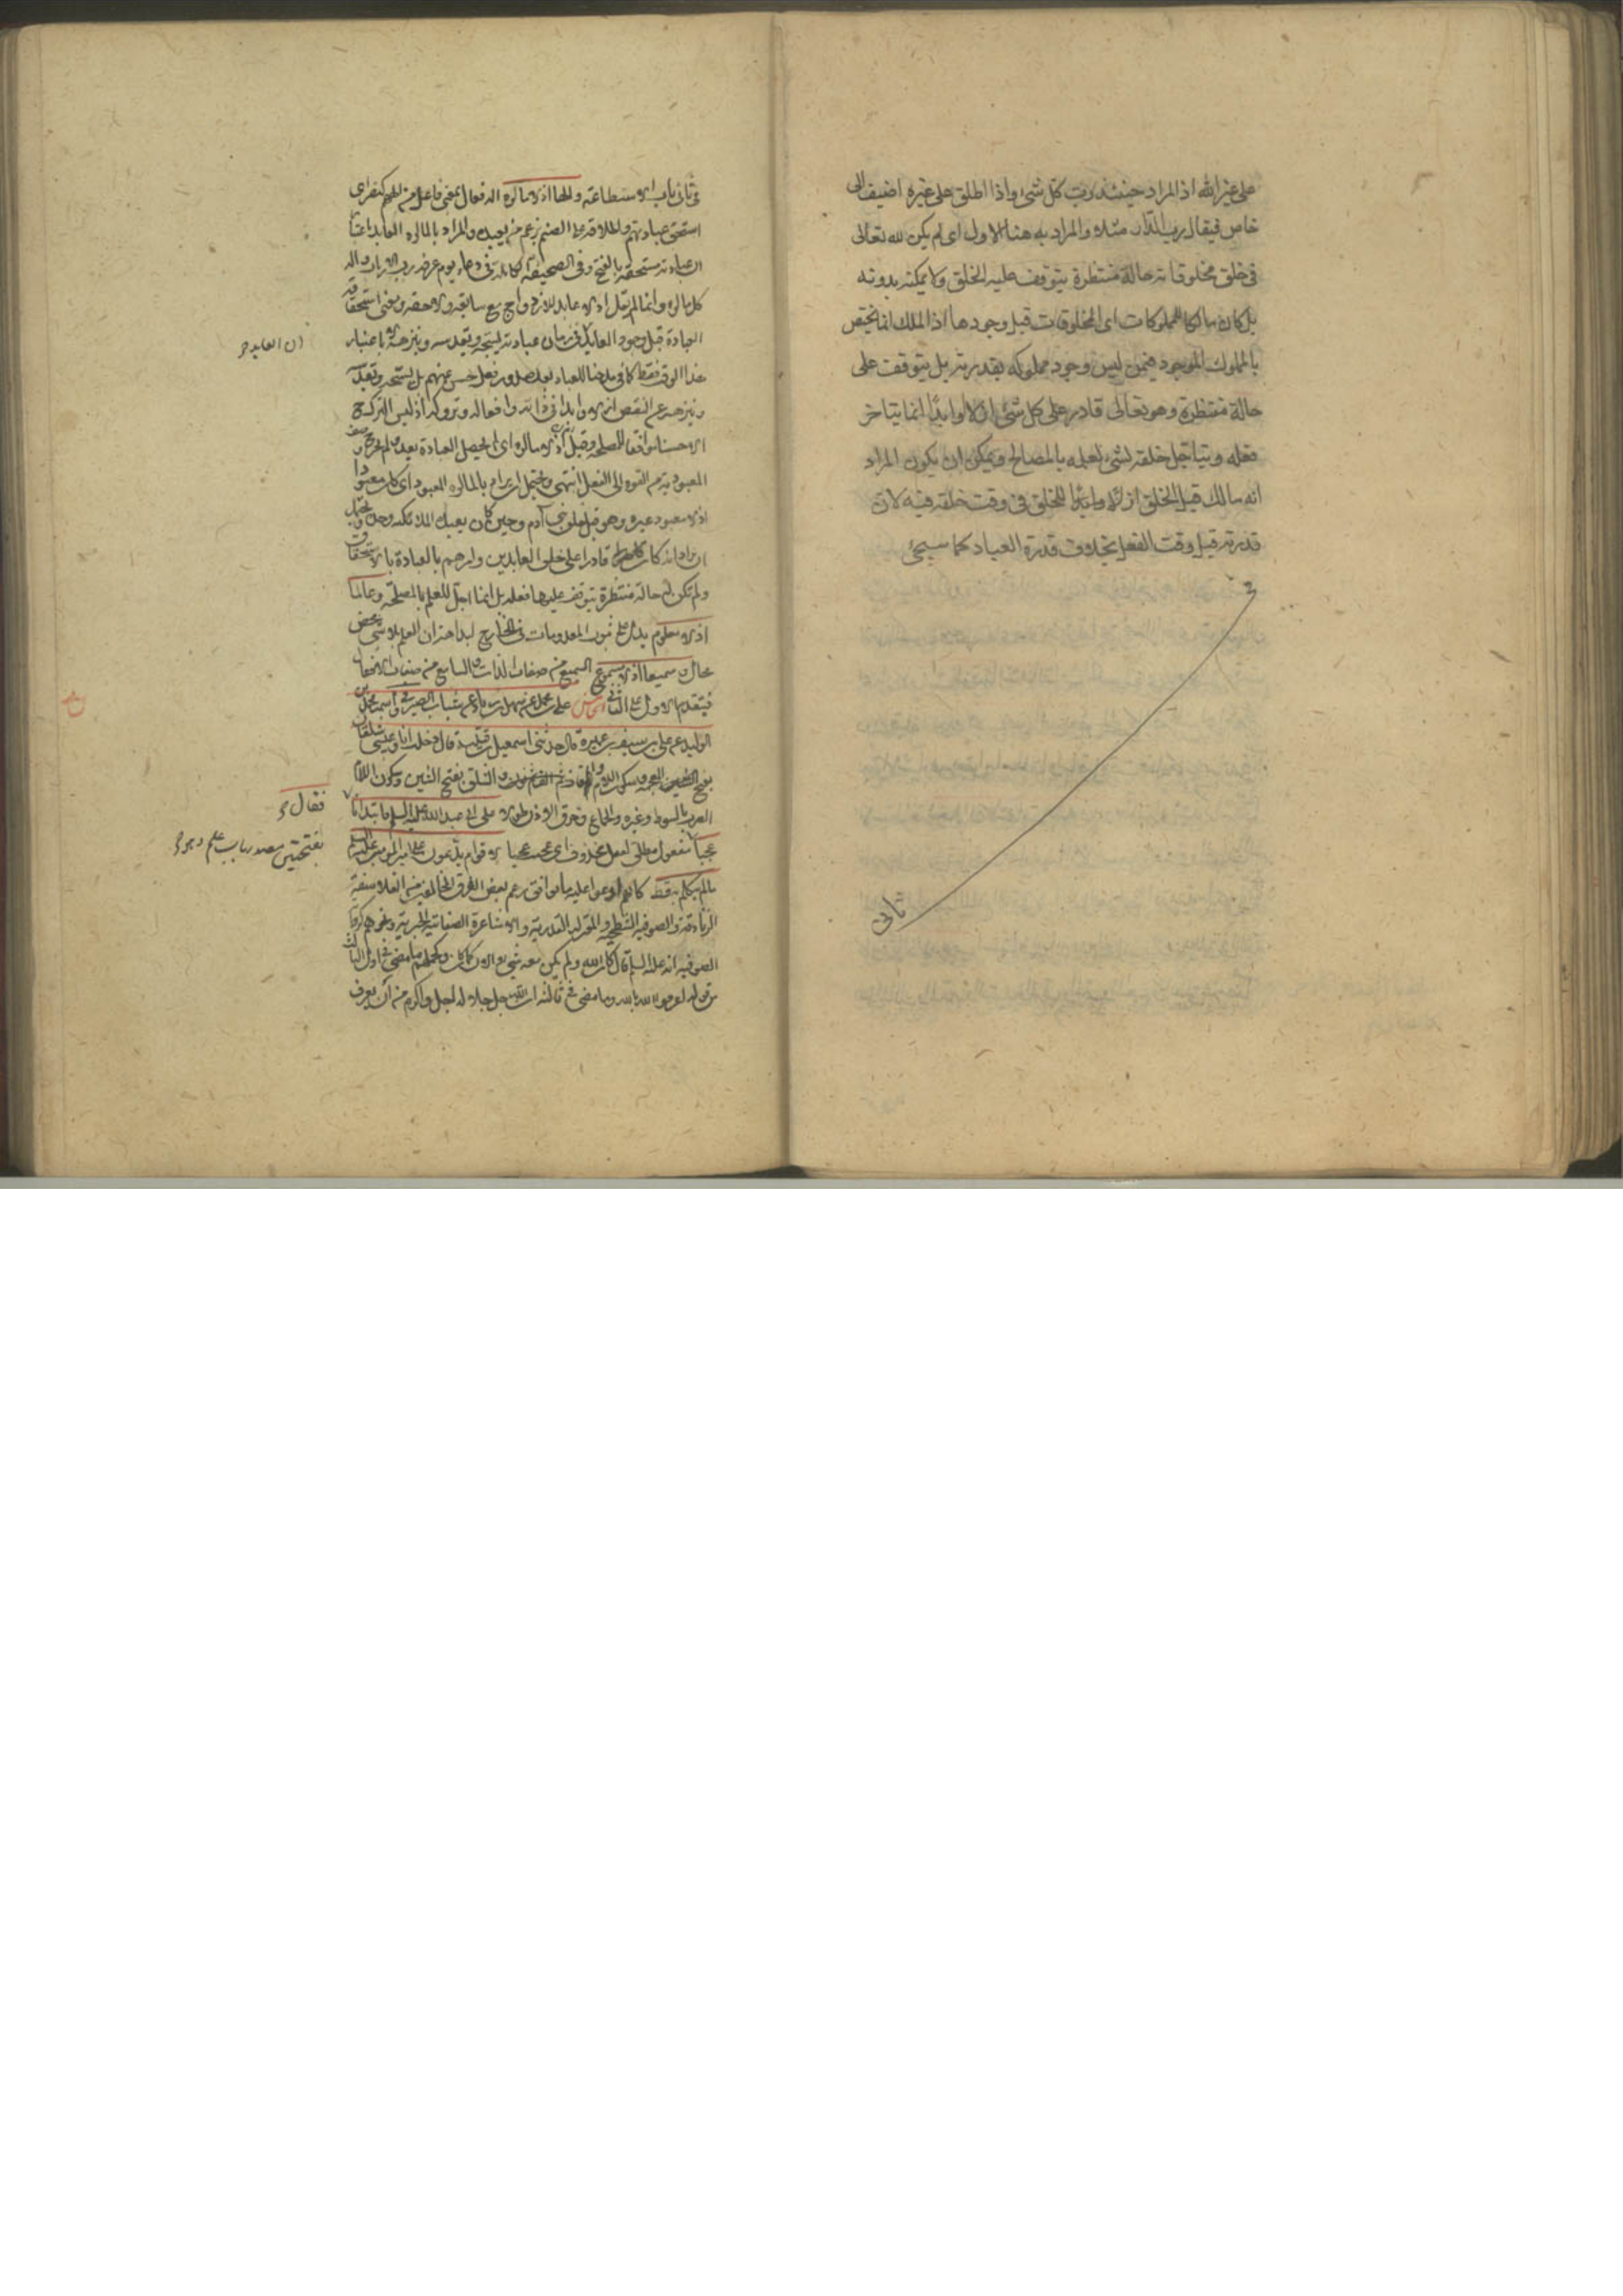 على غير الله اذ المراد حينئذ رب كل شئ واذا اطلق على غيره اضيف الى
خاص فيقال رب الدار مثلا والمراد به هنا الاول اى لم يكن لله تعالى
فى خلق مخلوقاته حالة منتظرة يتوقف عليه الخلق ولا يمكنه بدونه
بل كان مالكا للمملوكات اى المخلوقات قبل وجودها اذ الملك انما يختص
بالمملوك الموجود فيمن ليس وجود مملوكه بقدرته بل يتوقف على
حالة منتظرة وهو تعالى قادر على كل شئ ازلا وابدا انما يتاخر
فعله ويتاجل خلقه لشئ لعلمه بالمصالح ويمكن ان يكون المراد
انه مالك قبل الخلق ازلا وابدا للخلق فى وقت خلقه فيه لان
قدرته قبل وقت الفعل بخلاف قدرة العباد كما سيجئ
فى
ثانى
فى ثانى باب الاستطاعة والها اذ لا مالوه اله فعال بمعنى فاعل من الهم كنصر اى
استحق عبادتهم واطلاقه على الصنم بزعم من يعبده والمراد بالمالوه العابد
العبادة مستحقة بالفتح وفى الصحيفة الكاملة فى دعاء يوم عرفة رب الارباب واله
كل مالوه وانما لم يقل اذ لا عابد للازدواج مع سابقه ولاحقه ومعنى استحقاقه
العبادة قبل وجود العابد فى زمان عبادته يسبحه ويقدسه وينزهه لا باعتبار
ان العابد
هذا الوقت فقط كما فى مدحنا للعباد بعد صدور فعل حسن عنهم بل يسبحه ويقدسه
وينزهه عن النقص ازلا وابدا فى ذاته وافعاله وتروكه اذ ليس الترك
الا حسنا موافقا للمصلحة وقيل اذ لا مالوه اى لم يحصل العبادة بعد ولم يخرج
المعبودية من القوة الى الفعل انتهى ويحتمل ان يراد بالمالوه المعبود اى كان معبودا
اذ لا معبود غيره وهو قبل خلق بنى آدم وحين كان يعبده الملائكة وحده ويحتمل
ان يراد انه كان قادرا على خلق العابدين وامرهم بالعبادة بالاستحقاق
ولم تكن له حالة منتظرة يتوقف عليها فعله بل انما اجل للعلم بالمصلحة وعالما
اذ لا معلوم يدل على ثبوت المعدومات فى الخارج لبداهة ان العلم بلا شئ محض
محال سميعا اذ لا مسموع السميع من صفات الذات والسامع من صفات الافعال
فيتقدم الاول على الثانى الخامس على بن محمد عن سهل بن زياد عن شباب الصيرفى واسمه محمد بن
الوليد عن على بن سيف بن عميرة قال حدثنى اسمعيل بن قتيبة قال دخلت انا وعيسى شلقان
بفتح الشين المعجمة وسكون اللام وقاف ونون والشلق بفتح الشين وسكون اللام
الضرب بالسوط وغيره والجماع وخرق الاذن طولا على ابى عبد الله عليه السلام فابتدانا
فقال
عجبا مفعول مطلق لفعل محذوف اى عجبت عجبا لاقوام يدعون على امير المؤمنين عليه السلم
بفتحتين مصدر باب علم
ما لم يتكلم به قط كانهم ادعوا عليه ما يوافق زعم بعض الفرق المخالفين من الفلاسفة
الزنادقة والصوفية الشطحية والمعتزلة القدرية والاشاعرة الصفاتية الجبرية ونحوهم
الصوفية انه عليه السلم قال كان الله ولم يكن معه شئ والان كما كان وكحملهم ما مضى فى اول الباب الثالث
من قوله اعرفوا الله بالله وما مضى فى ثالثه ان الله جل جلاله اجل واكرم من ان يعرف